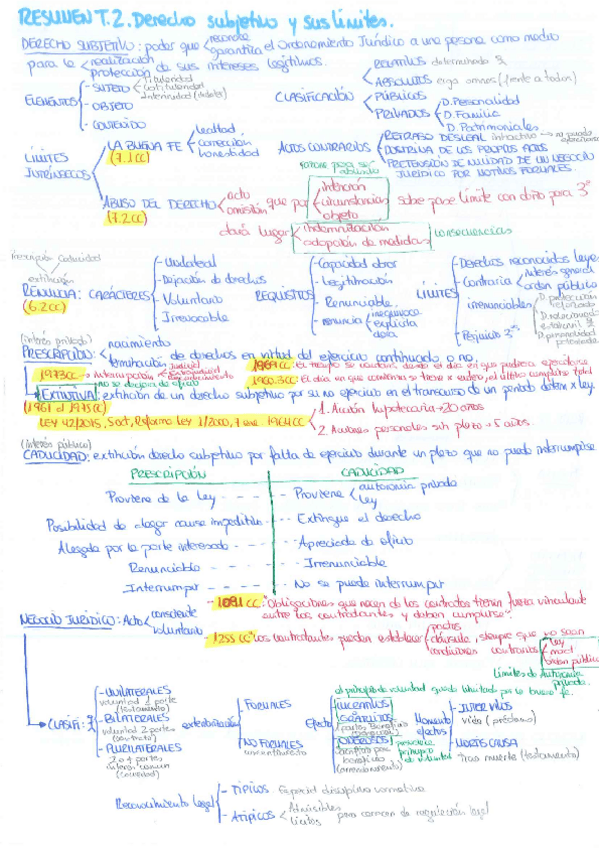 RESUMEN T.2. Derecho subjetivo y sus límites.
DERECHO SUBJETIVO: poder que reconoce
garantiza el Ordenamiento Jurídico a una persona como medio
para la realización
protección de sus intereses legítimos.
ELEMENTOS
- SUJETO
Titularidad
Cotitularidad
- OBJETO
- CONTENIDO
CLASIFICACIÓN
RELATIVOS determinado
ABSOLUTOS erga omnes (frente a todos)
PÚBLICOS
PRIVADOS
D. Personalidad
D. Familia
D. Patrimoniales
LÍMITES INTRÍNSECOS
LA BUENA FE
(7.1 CC)
lealtad
corrección
honestidad
ACTOS CONTRARIOS
RETRASO DESLEAL
DOCTRINA DE LOS PROPIOS ACTOS
PRETENSIÓN DE NULIDAD DE UN NEGOCIO
JURÍDICO POR MOTIVOS FORMALES.
ABUSO DEL DERECHO
(7.2 CC)
acto
omisión
que por
intención
circunstancias
objeto
sobre pase límite con daño para 3º
dará lugar
indemnización
adopción de medidas
consecuencias
extinción
RENUNCIA: CARACTERES
(6.2 CC)
- Unilateral
- Dejación de derechos
- Voluntario
- Irrevocable
REQUISITOS
- Capacidad obrar
- Legitimación
- Renunciable
- renuncia
inequívoca
explícita
clara
LÍMITES
- Derechos reconocidos leyes
- Contraria
interés general
orden público
- irrenunciables
- Perjuicio 3ºs
(interés privado)
PRESCRIPCIÓN:
nacimiento
terminación
de derechos en virtud del ejercicio continuado o no.
1973 CC → Interrupción
Judicial
Extrajudicial
no se declara de oficio
1969 CC: El tiempo se contará desde el día en que pudieron ejercitarse
EXTINTIVA: extinción de un derecho subjetivo por su no ejercicio en el transcurso de un período determ x ley.
(1961 al 1975 CC)
LEY 42/2015, 5 oct, Reforma Ley 1/2000, 7 ene. 1964 CC
1. Acción hipotecaria → 20 años
2. Acciones personales sin plazo → 5 años.
(interés público)
CADUCIDAD: extinción derecho subjetivo por falta de ejercicio durante un plazo que no puede interrumpirse
PRESCRIPCIÓN
CADUCIDAD
Proviene de la Ley - - - - Proviene
autonomía privada
Ley
Posibilidad de alegar causa impeditiva - - Extingue el derecho
Alegada por la parte interesada - - - - Apreciada de oficio
Renunciable - - - - Irrenunciable
Interrumpir - - - - No se puede interrumpir
NEGOCIO JURÍDICO: Acto
consciente
voluntario
- 1091 CC: "Obligaciones que nacen de los contratos tienen fuerza vinculante
entre los contratantes y deben cumplirse"
- 1255 CC "Los contratantes pueden establecer
pactos
cláusula
condiciones
siempre que no sean
contrarios
Ley
moral
orden público
Límites de autonomía
privada.
CLASIFI:
- UNILATERALES
voluntad 1 parte
(testamento)
- BILATERALES
voluntad 2 partes
(contrato)
- PLURILATERALES
2 o + partes
interés común
(sociedad)
exteriorización
FORMALES
NO FORMALES
Efecto
ONEROSOS
(arrendamiento)
Momento
efectos
INTER VIVOS
vida (préstamo)
MORTIS CAUSA
tras muerte (testamento)
Reconocimiento legal
- TÍPICOS Especial disciplina normativa
- ATÍPICOS
Admisibles
Lícitos
pero carecen de regulación legal